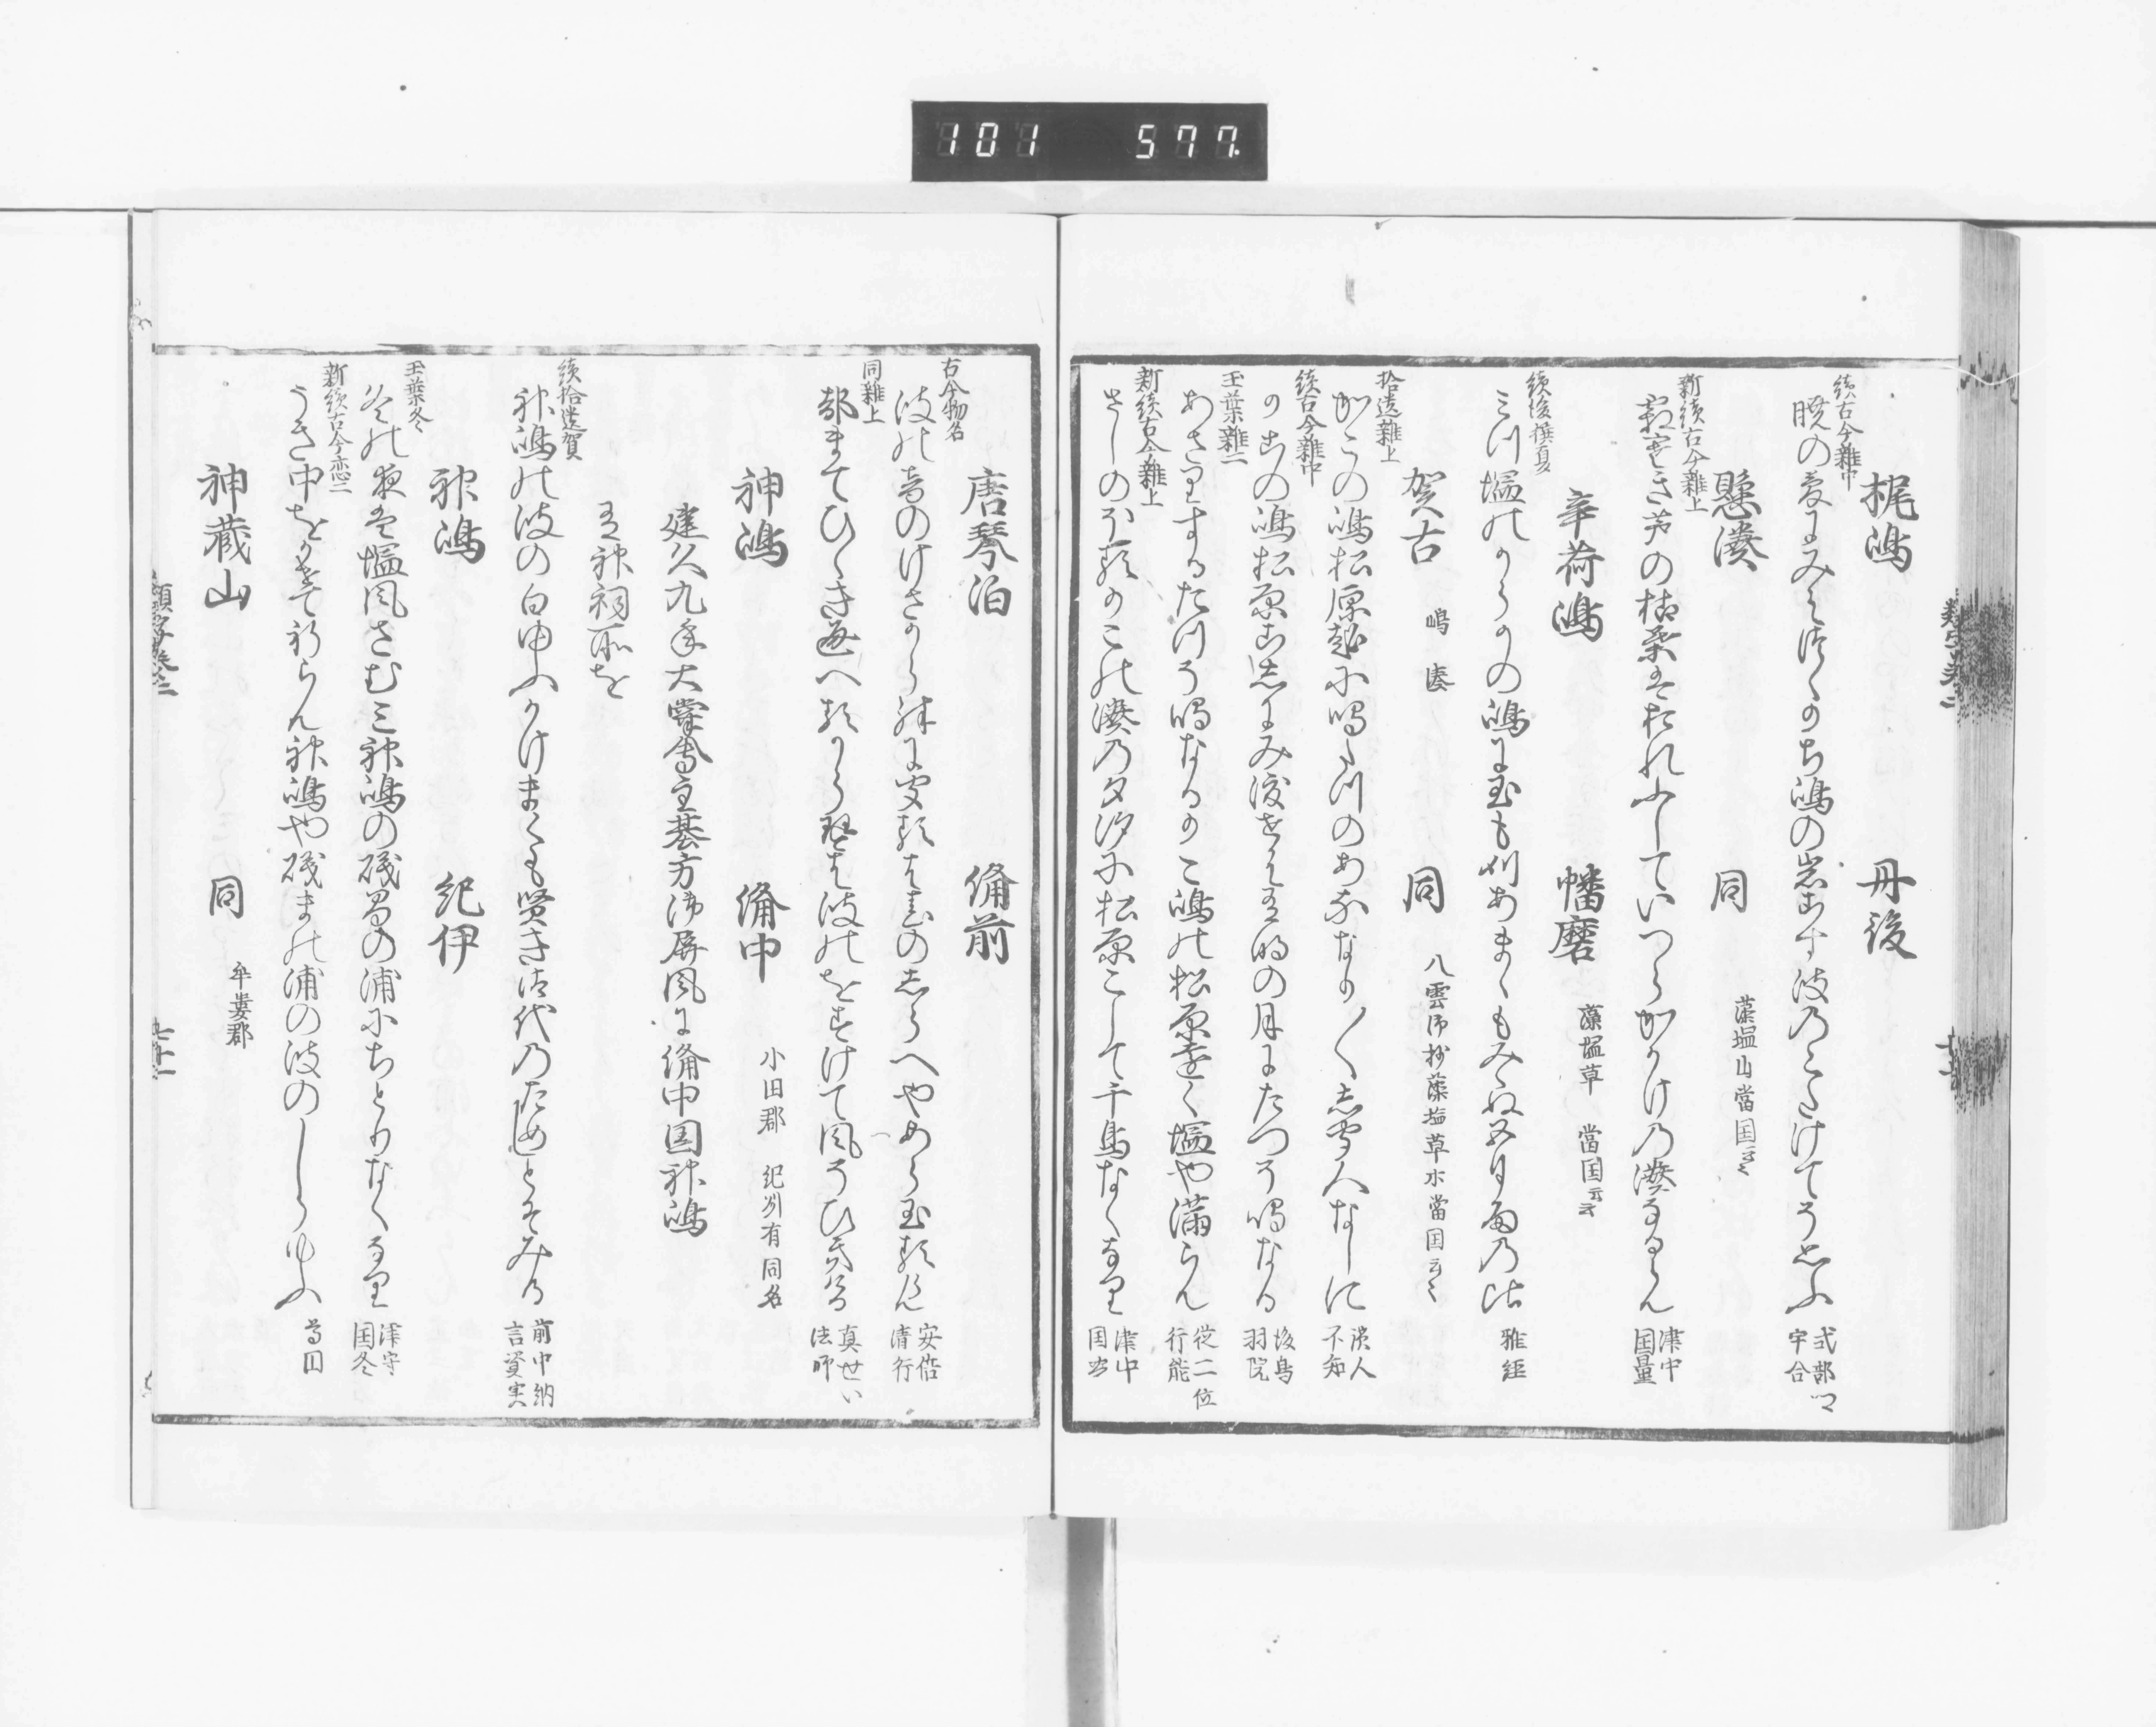 101 577.
梶嶋 丹後
続古今雑中
暁の夢にみえつゝかち嶋の岩こす波のくたけてそ思ふ 式部卿宇合
懸湊 同 藻塩山當国云々
新続古今雑上
霜寒き芦の枯葉はおれふしていつらかけの湊なるらん 津守国量
辛荷嶋 幡磨 藻塩草 當国云云
続後撰夏
みつ塩のからかの嶋に玉も刈あまゝもみえぬ五月雨の比 雅経
賀古 嶋 湊 同 八雲御抄藻塩草水當国云々
拾遺雑上
かこの嶋松原越に鳴たつのあなかなか／＼し聞人なしに 読人不知
続古今雑中
かこの嶋松原こしにみ渡せは有明の月にたつそ鳴なる 後鳥羽院
玉葉雑二
あさりするたつそ鳴なるかこ嶋の松原遠く塩や満らん 従二位行能
新続古今雑上
さしのほるかこの湊の夕汐に松原こして千鳥なくなり 津守国
唐琴泊 備前
古今物名
波の音のけさから殊に聞るは春のしらへやあらたまるらん 安倍清行
同雑上
都まてひゝき通へるからことは波のをすけて風そひきける 真せい法師
神嶋 備中 小田郡 紀州有同名
建久九年大嘗會主基方御屏風に備中国神嶋
有神祠所を
続拾遺賀
神嶋の波の白ゆふかけまくも賢き御代のためしとそみる 前中納言資実
神嶋 紀伊
玉葉冬
冬の夜は塩風さむみ神嶋の磯まの浦にちとりなくなり 津守国冬
新続古今恋二
うき中をかけて祈らん神嶋や磯まの浦の波のしらゆふ 為田
神蔵山 同 牟婁郡
類字巻二